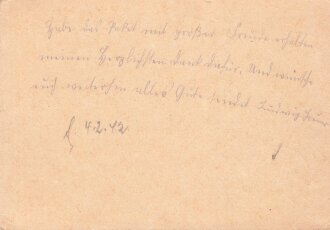 Habe das Paket mit großer Freude erhalten
meinen Herzlichsten Dank dafür. Und wünsche
euch weiterhin alles Gute sendet Ludwig
4.2.42.